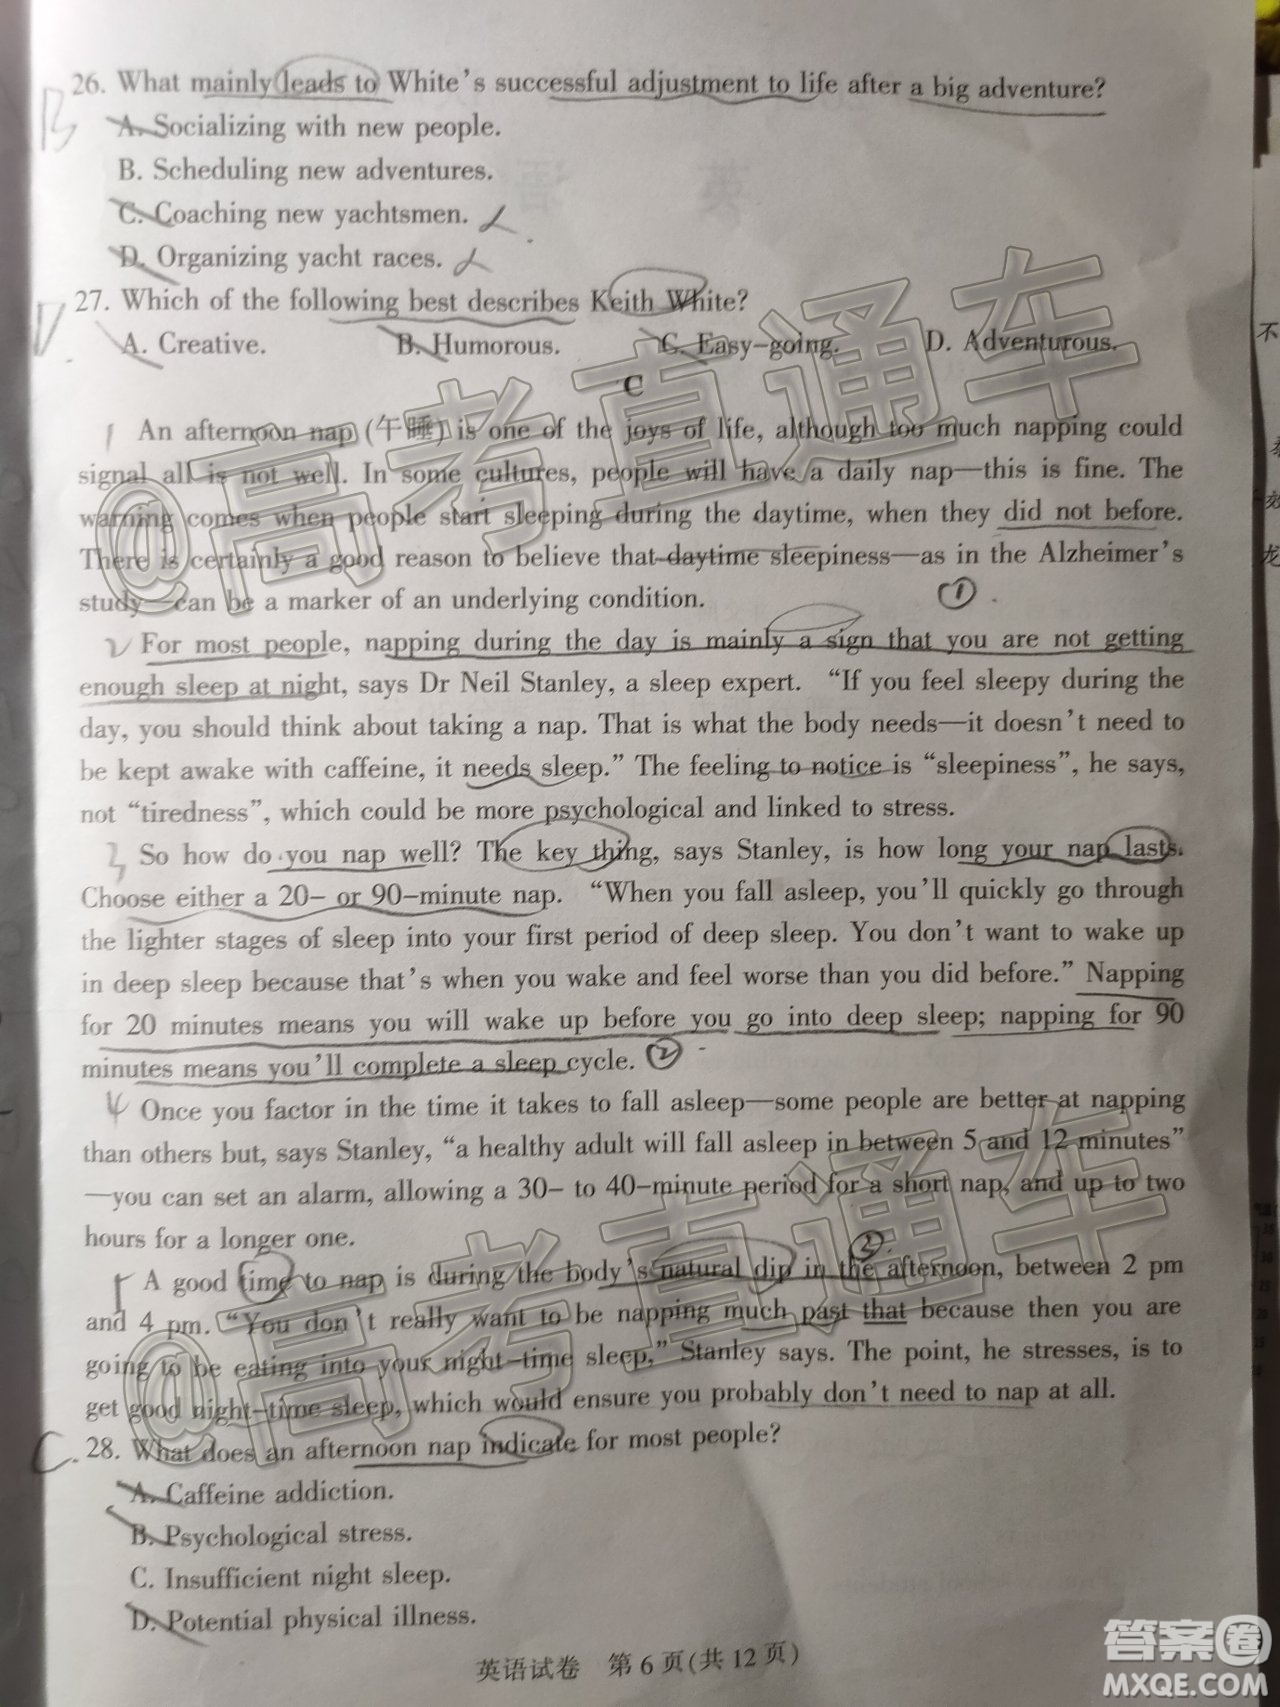 26. What mainly leads to White's successful adjustment to life after a big adventure?
B
A. Socializing with new people.
B. Scheduling new adventures.
C. Coaching new yachtsmen.
D. Organizing yacht races.
27. Which of the following best describes Keith White?
D
A. Creative. B. Humorous. C. Easy-going. D. Adventurous.
C
1 An afternoon nap (午睡) is one of the joys of life, although too much napping could
signal all is not well. In some cultures, people will have a daily nap—this is fine. The
warning comes when people start sleeping during the daytime, when they did not before.
There is certainly a good reason to believe that daytime sleepiness—as in the Alzheimer's
study—can be a marker of an underlying condition. ①
2 For most people, napping during the day is mainly a sign that you are not getting
enough sleep at night, says Dr Neil Stanley, a sleep expert. “If you feel sleepy during the
day, you should think about taking a nap. That is what the body needs—it doesn't need to
be kept awake with caffeine, it needs sleep.” The feeling to notice is “sleepiness”, he says,
not “tiredness”, which could be more psychological and linked to stress.
3 So how do you nap well? The key thing, says Stanley, is how long your nap lasts.
Choose either a 20- or 90-minute nap. “When you fall asleep, you'll quickly go through
the lighter stages of sleep into your first period of deep sleep. You don't want to wake up
in deep sleep because that's when you wake and feel worse than you did before.” Napping
for 20 minutes means you will wake up before you go into deep sleep; napping for 90
minutes means you'll complete a sleep cycle. ②
4 Once you factor in the time it takes to fall asleep—some people are better at napping
than others but, says Stanley, “a healthy adult will fall asleep in between 5 and 12 minutes”
—you can set an alarm, allowing a 30- to 40-minute period for a short nap, and up to two
hours for a longer one.
③
A good time to nap is during the body's natural dip in the afternoon, between 2 pm
and 4 pm. “You don't really want to be napping much past that because then you are
going to be eating into your night-time sleep,” Stanley says. The point, he stresses, is to
get good night-time sleep, which would ensure you probably don't need to nap at all.
C. 28. What does an afternoon nap indicate for most people?
A. Caffeine addiction.
B. Psychological stress.
C. Insufficient night sleep.
D. Potential physical illness.
英语试卷 第6页(共12页)
@高考直通车
@高考直通车
答案圈
MXQE.COM